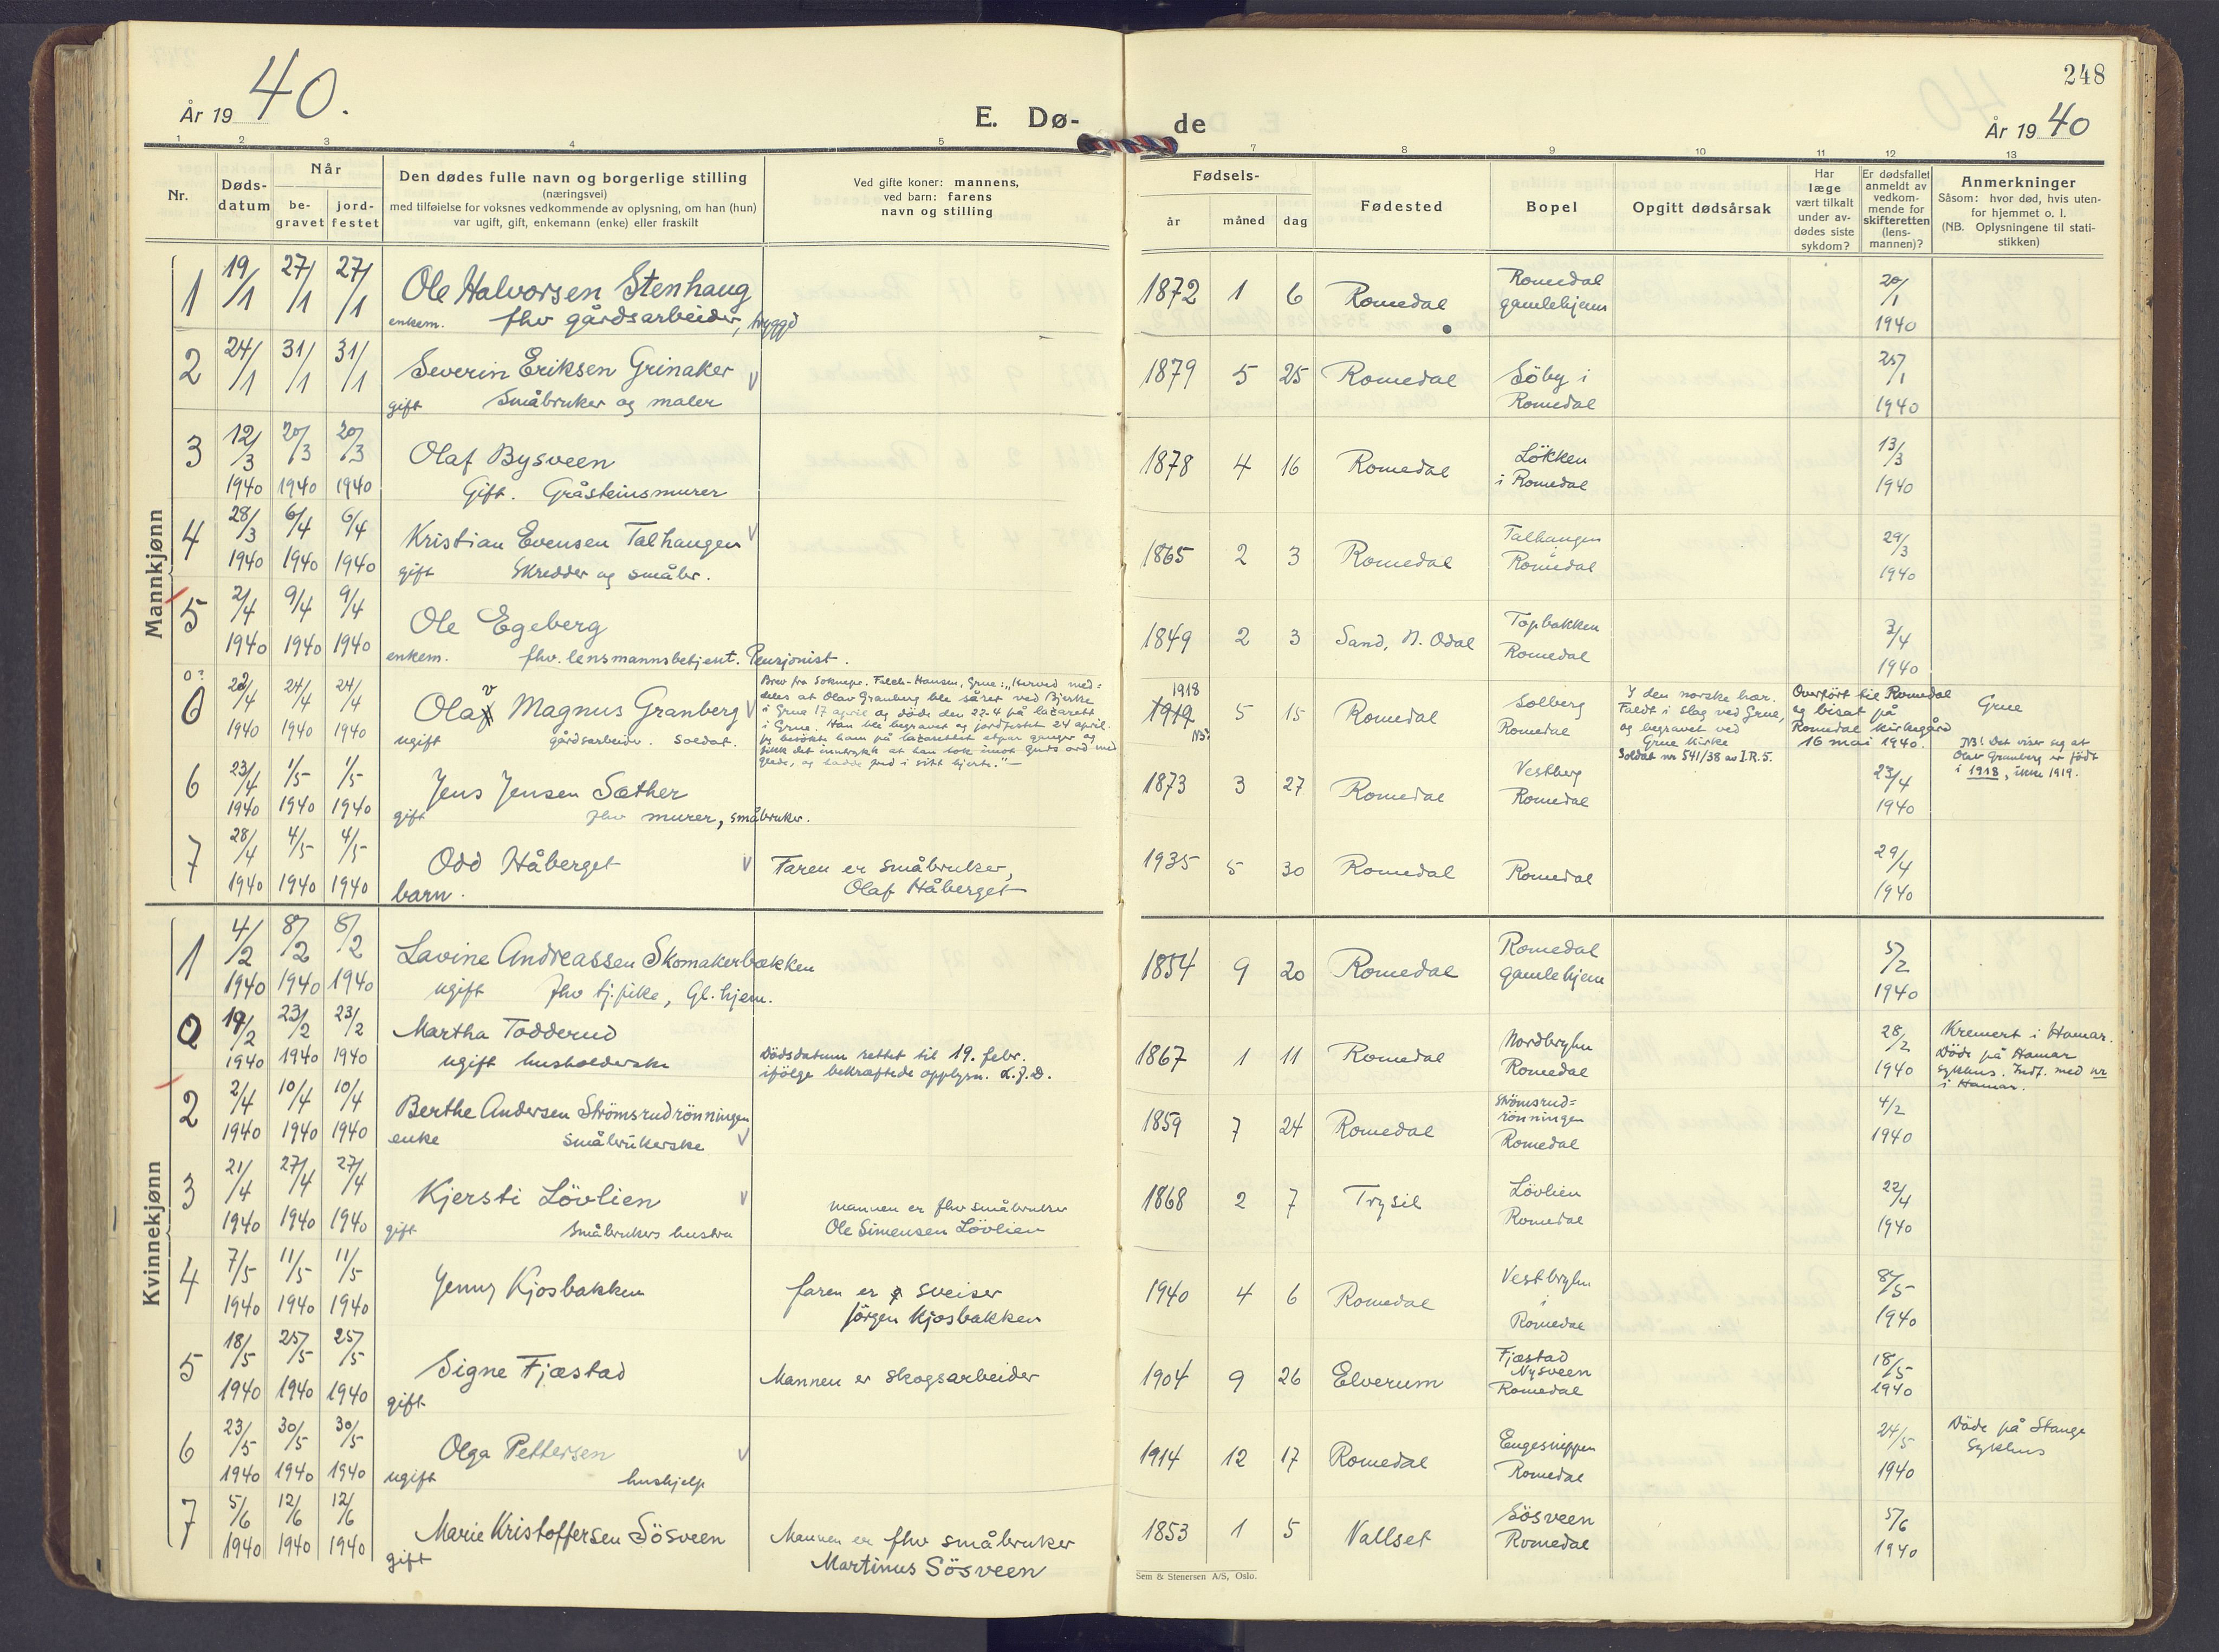 År 19 40.
E. Dø-
1 2 3 4 5
Nr.
Døds-
datum
Når
be-
gravet
jord-
festet
Den dødes fulle navn og borgerlige stilling
(næringsvei)
med tilføielse for voksnes vedkommende av oplysning, om han (hun)
var ugift, gift, enkemann (enke) eller fraskilt
Ved gifte koner: mannens,
ved barn: farens
navn og stilling
Mannkjønn
1 19/1 27/1 27/1 Ole Halvorsen Stenhaug
enkem. fhv gårdsarbeider, trygge
2 24/1 31/1 31/1 Severin Eriksen Grinaker
gift Småbruker og maler
3 12/3 20/3 20/3 Olaf Bysveen
1940 1940 1940 Gift. Gråsteinsmurer
4 28/3 6/4 6/4 Kristian Evensen Talhaugen
1940 1940 1940 gift Skredder og småbr.
5 2/4 9/4 9/4 Ole Egeberg
1940 1940 1940 enkem. fhv. lensmannsbetjent. Pensjonist.
0 22/4 24/4 24/4 Olav Magnus Granberg
1940 1940 1940 ugift gårdsarbeider. Soldat.
Brev fra Soknepr. Falch-Hansen, Grue: "Herved med-
deles at Olav Granberg ble såret ved Bjerke
i Grue 17 april og døde den 22.4 på lazarett
i Grue. Han ble begravet og jordfestet 24 april.
Jeg besøkte ham på lazarettet et par ganger og
fikk det inntrykk at han tok imot Guds ord med
glede, og hadde fred i sitt hjerte."
6 23/4 1/5 1/5 Jens Jensen Sæther
1940 1940 1940 gift fhv murer, småbruker.
7 28/4 4/5 4/5 Odd Håberget
1940 1940 1940 barn.
Faren er småbruker,
Olaf Håberget
Kvinnekjønn
1 4/2 8/2 8/2 Lavine Andreassen Skomakerbakken
1940 1940 1940 ugift fhv tj.pike, Gl.hjem.
0 19/2 23/2 23/2 Martha Todderud
1940 1940 1940 ugift husholderske
Dödsdatum rettet til 19. febr.
ifölge bekræftede opplysn.
2 2/4 10/4 10/4 Berthe Andersen Strömsrudrönningen
1940 1940 1940 enke Småbrukerske
3 21/4 27/4 27/4 Kjersti Lövlien
1940 1940 1940 gift Småbrukers hustru
mannen er fhv småbruker
Ole Simensen Lövlien
4 7/5 11/5 11/5 Jenny Kjosbakken
1940 1940 1940
faren er sveiser
Jörgen Kjosbakken
5 18/5 25/5 25/5 Signe Fjæstad
1940 1940 1940 gift
Mannen er skogsarbeider
6 23/5 30/5 30/5 Olga Pettersen
1940 1940 1940 ugift hushjelp
7 5/6 12/6 12/6 Marie Kristoffersen Sösveen
1940 1940 1940 gift
Mannen er fhv småbruker
Martinus Sösveen
248
de
År 19 40
7 8 9 10 11 12 13
Fødsels-
år måned dag
Fødested
Bopel
Opgitt dødsårsak
Har
læge
vært tilkalt
under av-
dødes siste
sykdom?
Er dødsfallet
anmeldt av
vedkom-
mende for
skifteretten
(lens-
mannen)?
Anmerkninger
Såsom: hvor død, hvis uten-
for hjemmet o. l.
(NB. Oplysningene til stati-
stikken)
1872 1 6 Romedal Romedal
gamlehjem
20/1
1940
1879 5 25 Romedal Söby i
Romedal
25/1
1940
1878 4 16 Romedal Lökken
i Romedal
13/3
1940
1865 2 3 Romedal Talhaugen
Romedal
29/3
1940
1849 2 3 Sand, N. Odal Topbakken
Romedal
3/4
1940
1918
1919 5 15 Romedal Solberg
NB! Romedal
I den norske hær.
Faldt i slag ved Grue,
og begravet ved
Grue Kirke
Soldat nr 541/38 av I.R.5.
Overfört til Romedal
og bisat på
Romedal kirkegård
16 mai 1940.
Grue
NB! Det viser seg at
Olav Granberg er födt
i 1918, ikke 1919.
1873 3 27 Romedal Vestberg
Romedal
23/4
1940
1935 5 30 Romedal Romedal
29/4
1940
1854 9 20 Romedal Romedal
gamlehjem
5/2
1940
1867 1 11 Romedal Nordbryhn
Romedal
28/2
1940
Kremert i Hamar.
Döde på Hamar
sykehus. Indf. med nr
i Hamar.
1859 7 24 Romedal Strömsrud-
rönningen
Romedal
4/2
1940
1868 2 7 Trysil Lövlien
Romedal
22/4
1940
1940 4 6 Romedal Vestbryhn
i
Romedal
8/5
1940
1904 9 26 Elverum Fjæstad
Nysveen
Romedal
18/5
1940
1914 12 17 Romedal Engesnippen
Romedal
24/5
1940
Döde på Stange
Sykehus
1853 1 5 Vallset Sösveen
Romedal
5/6
1940
Sem & Stenersen A/S, Oslo.